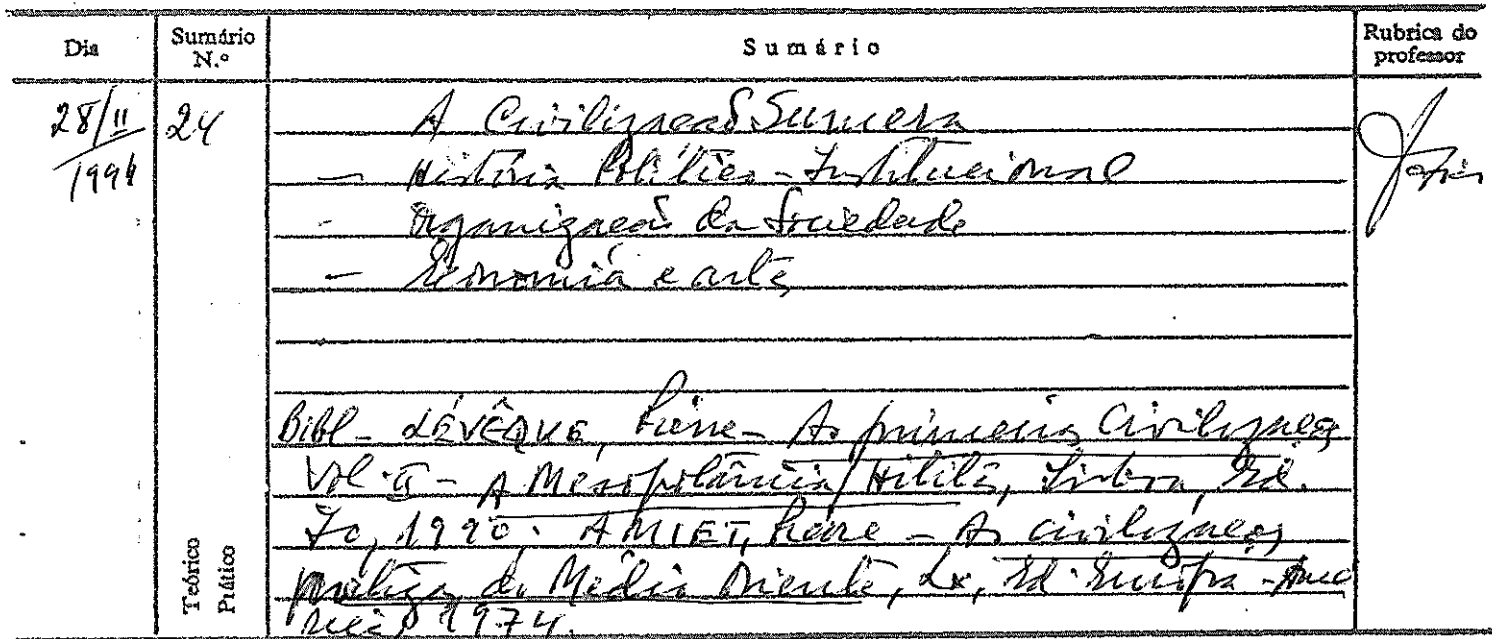 Dia
Sumário N.º
Sumário
Rubrica do professor
28/11/1994
24
A Civilização Sumera
- História Política-Institucional
- Organização da Sociedade
- Economia e arte
Bibl- LÉVÊQUE, Pierre- As primeiras Civilizações
Vol. II - A Mesopotâmia/Hititas, Lisboa, Ed.
70, 1990. AMIET, Pierre - As civilizações
antigas do Médio Oriente, Lx, Ed. Europa-Amé
rica, 1974.
Teórico
Prático